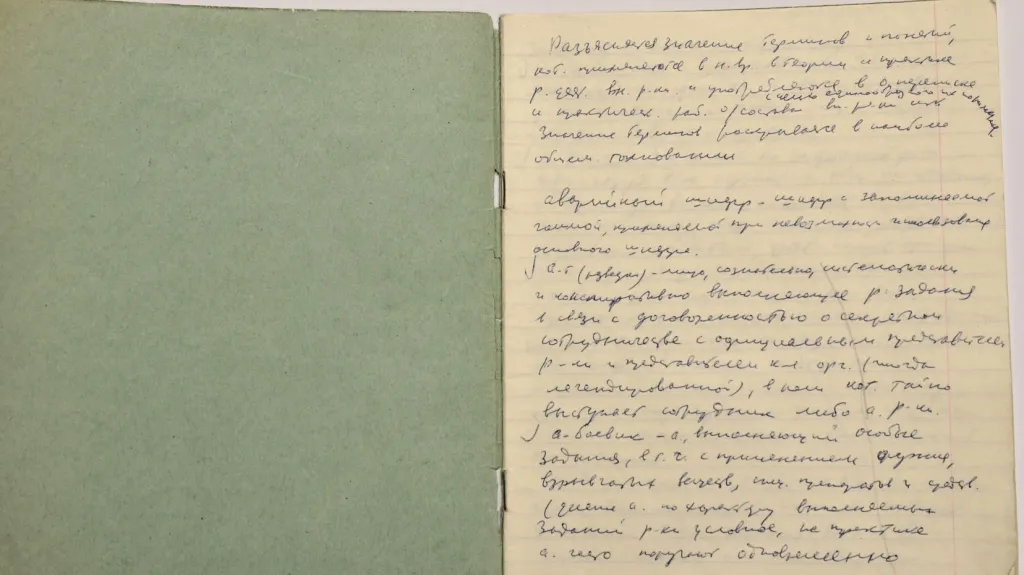 Разъясняется значение терминов и понятий,
кот. применяются в н. вр. в теории и практике
р. деят. вн. р-ки и употребляются в о. переписке
и практическ. раб. о/состава вн. р-ки
с целью единообразного их понимания
Значение терминов раскрывается в наиболее
общем толковании
аварийный шифр - шифр с запоминаемой
гаммой, применяемой при невозможности использования
основного шифра.
а-т (развед) - лицо, сознательно, систематически
и конспиративно выполняющее р. задания
в связи с договоренностью о секретном
сотрудничестве с официальным представителем
р-ки и представителем к-л. орг. (иногда
легендированной), в кот. тайно
выступает сотрудник либо а. р-ки.
а-боевик - а, выполняющий особые
задания, в т. ч. с применением оружия,
взрывчатых веществ, спец. препаратов и средств.
(деление а. по характеру выполняемых
заданий р-ки условное, на практике
а. часто поручают одновременно